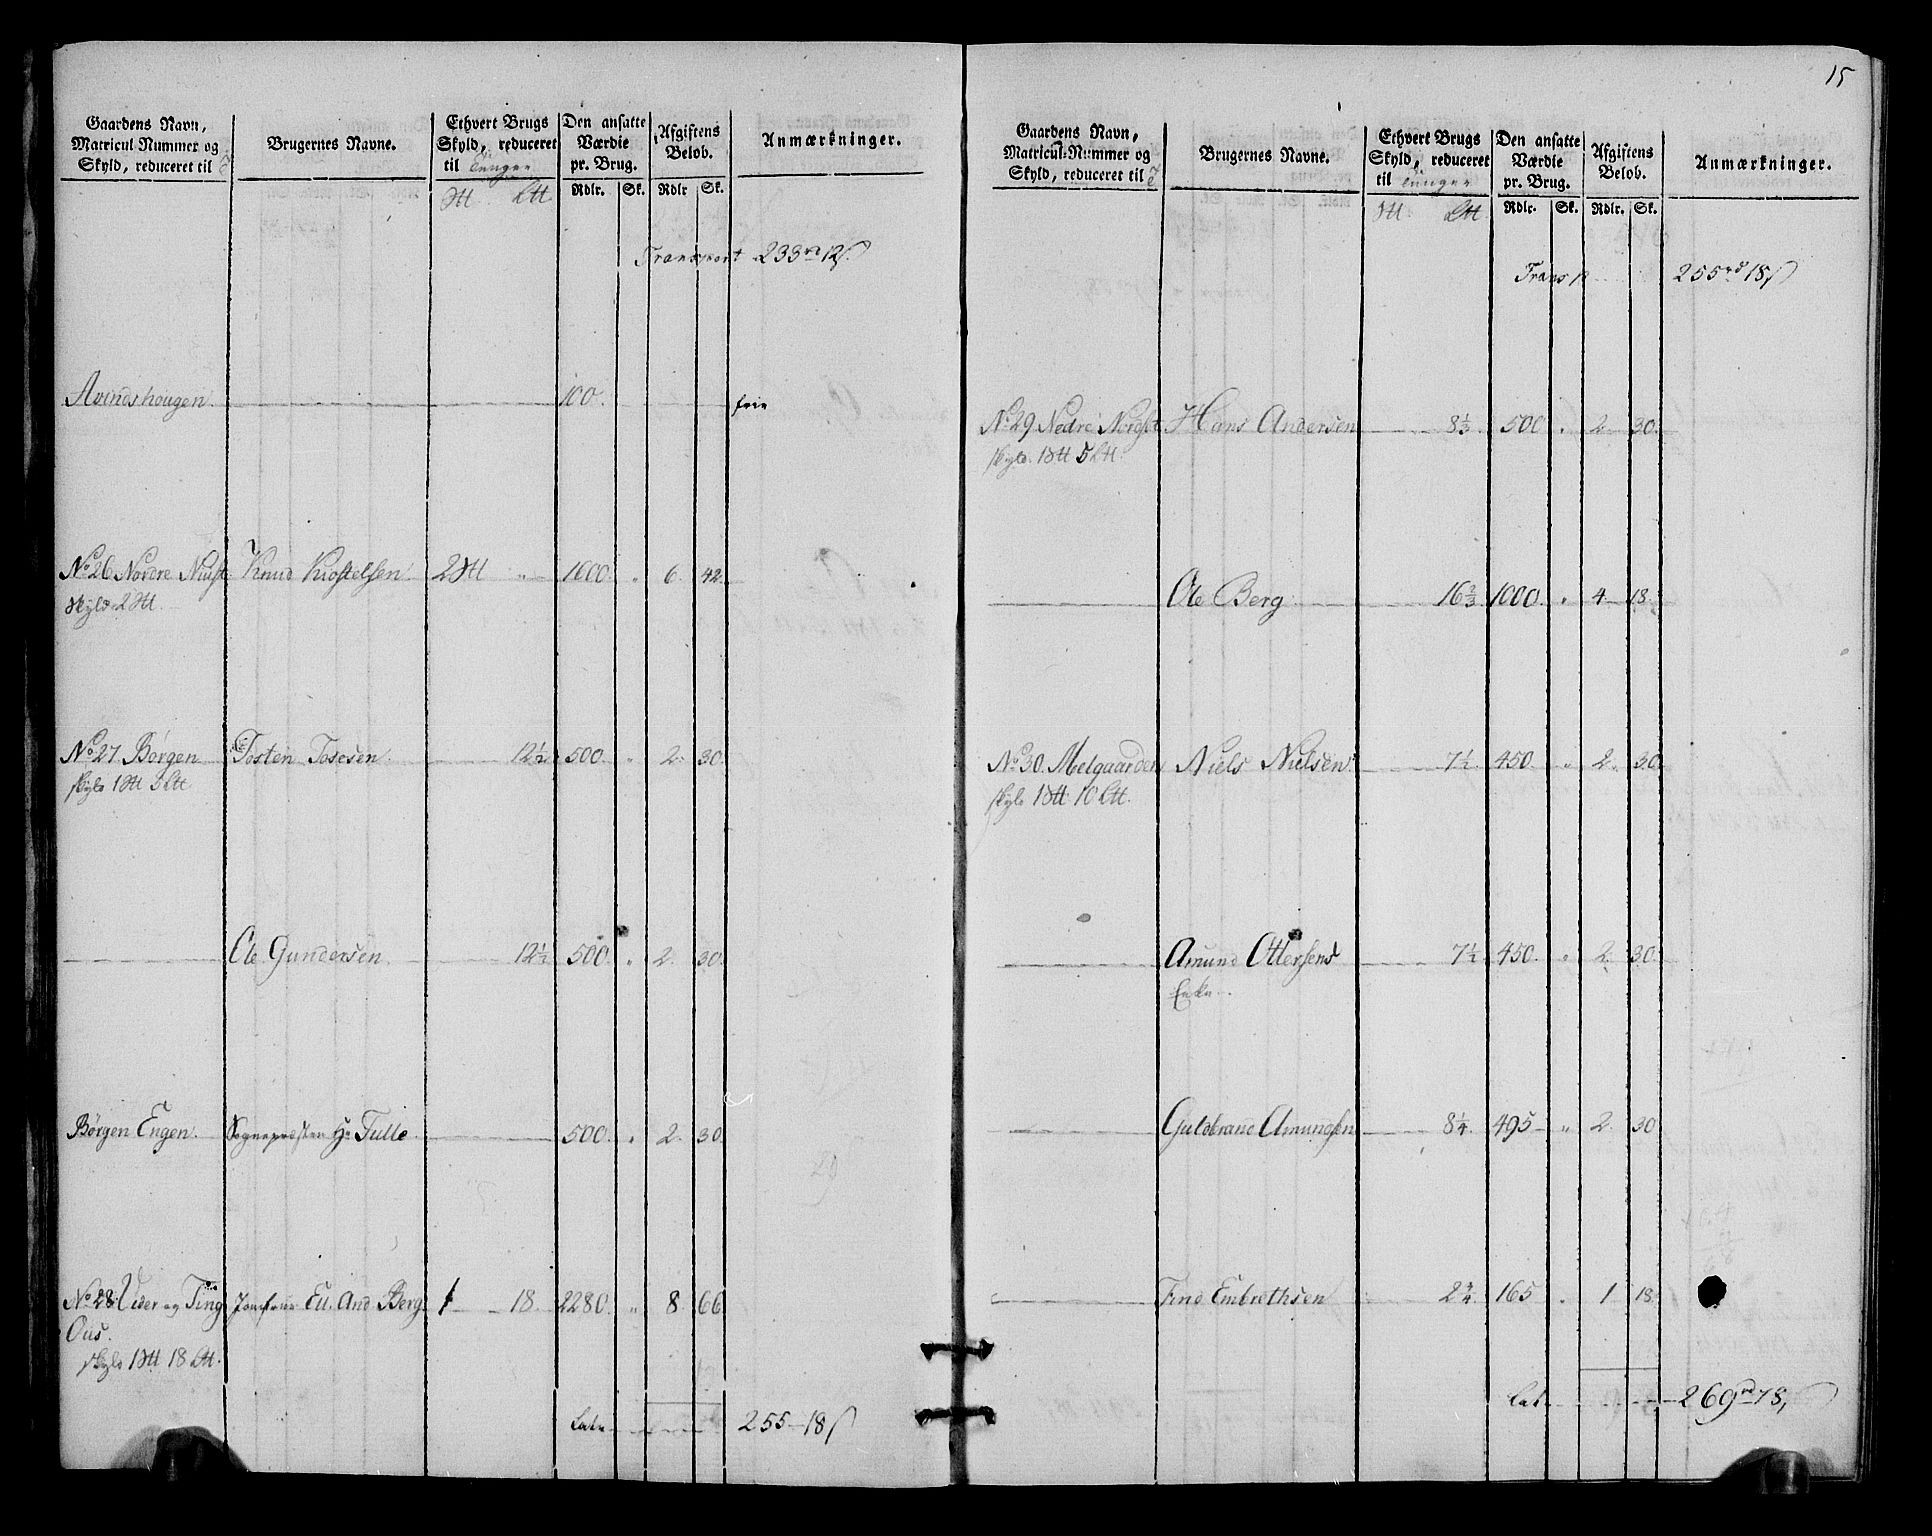 Gaardens Navn,
Matricul Nummer og
Skyld, reduceret til
Brugernes Navne.
Ethvert Brugs
Skyld, reduceret
til Tunger
Den ansatte
Værdie
pr. Brug.
Afgiftens
Beløb.
Anmærkninger.
Rdlr. Sk. Rdlr Sk.
Transport 233 rd 12 s
Avindshougen 100. frie
No. 26 Nordre Niust Knud Kiostelsen 2 " 1600 " 6. 42.
skyld 2
No. 27. Börgen Tosten Tosesen 12½ 500. " 2. 30.
skyld 1 5
Ole Gundersen 12½ 500. " 2. 30.
Börgen Engen. Sognepresten Hr Tulle 500. " 2. 30.
No. 28. Uider og Ting Jomfrue Eu. And Berg. 1 18. 2280. " 8. 66
Ous.
skyld 1 18
Late 255 - 18 s
15
Gaardens Navn,
Matricul-Nummer og
Skyld, reduceret til
Brugernes Navne.
Ethvert Brugs
Skyld, reduceret
til Tunger
Den ansatte
Værdie
pr. Brug.
Afgiftens
Beløb.
Anmærkninger.
Rdlr. Sk. Rdlr. Sk.
Transp 255 rd 18 s
No. 29 Nedre Nordset Hans Andersen 8⅓ 500 " 2. 30.
skyld. 1 5
Ole Berg 16⅔ 1000. " 4 18.
No. 30. Melgaarden Niels Nielsen 7½ 450. " 2. 30.
skyld 1 10
Amund Ottersens 7½ 450. " 2. 30.
Enke
Guldbrand Amundsen 8¼ 495 " 2. 30
Find Embrethsen 2¾ 165 " 1 18.
Lat 269 rd 78,